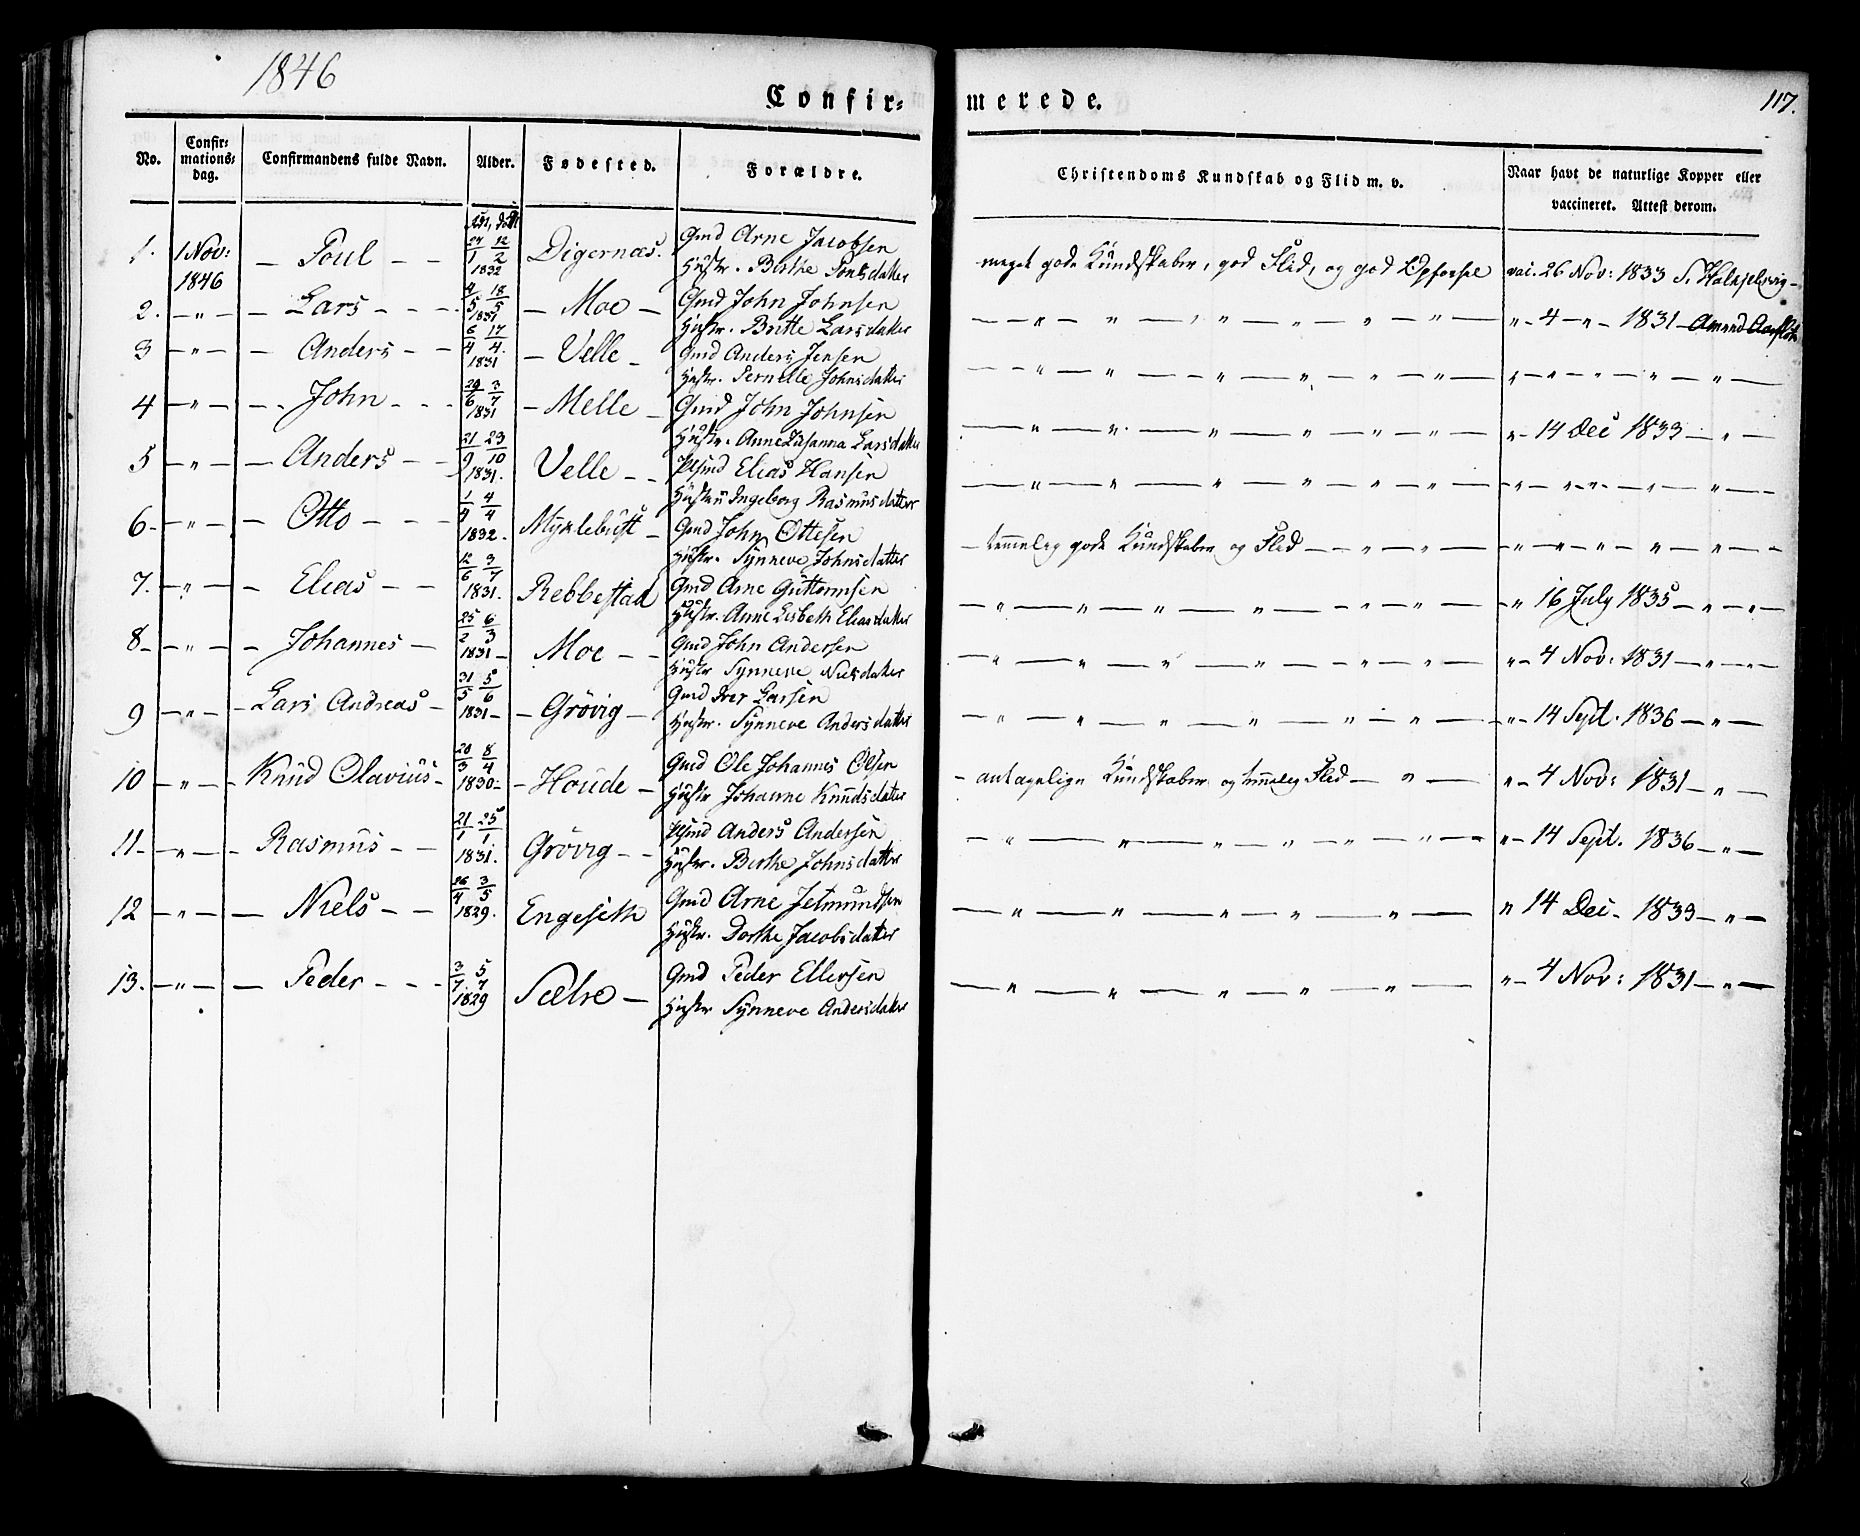 1846
Confir- merede. 117.
No. Confirmationsdag. Confirmandens fulde Navn. Alder. Fødested. Forældre. Christendoms Kundskab og Flid m. v. Naar havt de naturlige Kopper eller vaccineret. Attest derom.
1. 1 Nov: 1846 – Poul – – 24/1 12/2 1832 Digernæs. Gmd Arne Jacobsen
Hustr. Birthe Poulsdatter
meget gode Kundskaber, god Flid, og god Opførsel vac. 26 Nov: 1833
2. – " – – Lars – – – 4/5 18/5 1831 – Moe – Gmd John Johnsen
Hustr. Britte Larsdatter
– " – " – " – " – " – " – " – 4 – " – 1831 –
3 – " – – Anders – – 6/4 17/4 1831 – Velle – Gmd Anders Jensen
Hustr. Pernille Johnsdatter
– " – " – " – " – " – " – " –
4 – " – – John – – – 29/6 3/7 1831 – Melle – Gmd John Johnsen
Hustr. Anne Susanna Larsdatter
– " – " – " – " – " – " – " – 14 Dec 1833 – " –
5 – " – – Anders – – 21/9 23/10 1831. Velle – – Plsmd Elias Hansen
Hustru Ingeborg Rasmusdatter
– " – " – " – " – " – " – " –
6 – " – – Otto – – – 1/4 4/4 1832. Myklebust – Gmd John Ottesen
Hustr. Synneve Johnsdatter
– temmelig gode Kundskaber og Flid – – " – " – " – " – " – " –
7. – " – – Elias – – 12/6 3/7 1831. Rebbestad Gmd Arne Guttormsen
Hustr. Anne Lisbeth Eliasdatter
– " – " – " – " – " – " – " 16 July 1835 – " – " –
8 – " – – Johannes – 25/2 6/3 1831 – Moe – – Gmd John Andersen
Hustr Synneve Nielsdatter
– " – " – " – " – " – " – " – 4 Nov: 1831 – " – " –
9 – " – – Lars Andreas – 31/5 5/6 1831 – – Grøvig – Gmd Iver Larsen
Hustr. Synneve Andersdatter
– " – " – " – " – " – " – " – 14 Sept. 1836 – " –
10 – " – – Knud Olavius – 20/3 8/4 1830 – – Houde – Gmd Ole Johannes Olsen
Hustr Johanne Knudsdatter
– antagelige Kundskaber og temmelig Flid – " – " – 4 Nov: 1831 – " –
11 – " – – Rasmus – – 21/1 25/1 1831. Grøvig – – Plsmd Anders Andersen
Hustr. Birthe Johnsdatter
– " – " – " – " – " – " – " – 14 Sept. 1836 – " –
12 – " – – Niels – – 26/4 3/5 1829. Engeseth Gmd Arne Jetmundsen
Hustr. Dorthe Jacobsdatter
– " – " – " – " – " – " – " 14 Dec. 1833 – " –
13. – " – – Peder – – – 3/7 5/7 1829 Sætre – Gmd Peder Ellersen
Hustr Synneve Andersdatter
– " – " – " – " – " – " – 4 Nov: 1831 – " –